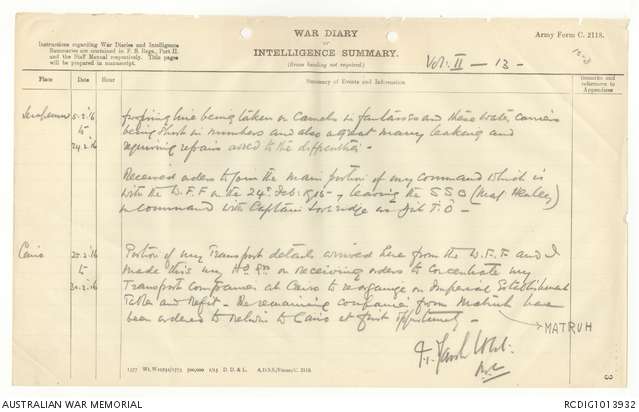 WAR DIARY
or
INTELLIGENCE SUMMARY.
(Erase heading not required.)
Army Form C. 2118.
Instructions regarding War Diaries and Intelligence
Summaries are contained in F. S. Regs., Part II.
and the Staff Manual respectively. Title pages
will be prepared in manuscript.
Vol: II - 13 -
Place
Date
Hour
Summary of Events and Information
Remarks and
references to
Appendices
5.2.16
to
24.2.16
line being taken on Camels in fantasses and these water carriers
being short in numbers and also a great many leaking and
requiring repairs added to the difficulties -
Received orders to join the main portion of my command which is
with the W.F.F on the 24th Feb: 1916 -, leaving the SSO (Maj Henley)
in command with Captain as -
Cairo
25.2.16
to
Portion of my Transport details arrived here from the W.F.F and I
made this my Hd Qrs on receiving orders to concentrate my
Transport companies at Cairo to reorganize on Imperial Establishment
Tables and Refit - The remaining companies from Matruh have
been ordered to return to Cairo at first opportunity -
MATRUH
3
1577 Wt.W10791/1773 500,000 1/15 D. D. & L. A.D.S.S./Forms/C. 2118.
AUSTRALIAN WAR MEMORIAL
RCDIG1013932